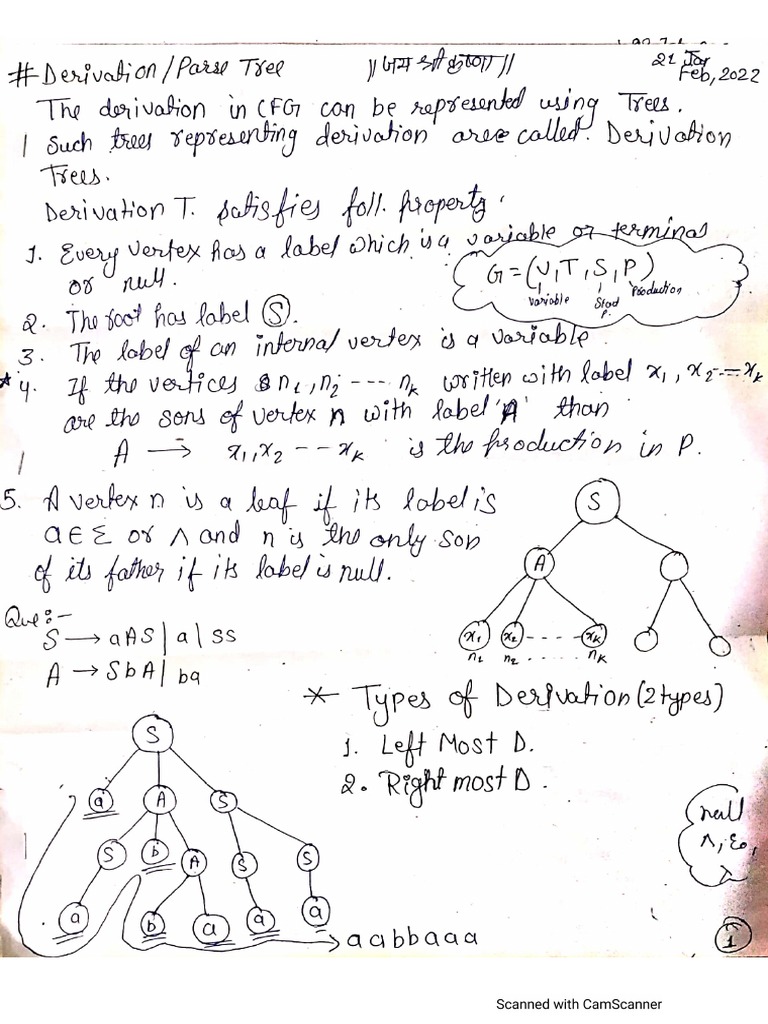 # Derivation/Parse Tree ॥ जय श्री कृष्णा ॥ 21
Feb, 2022
The derivation in CFG can be represented using Trees.
Such trees representing derivation are called Derivation
Trees.
Derivation T. satisfies foll. property
1. Every vertex has a label which is a variable or terminas
or null.
G = (V, T, S, P)
variable Production
2. The root has label S.
3. The label of an internal vertex is a variable
* 4. If the vertices n1, n2 ---- nk written with label x1, x2 --- xk
are the sons of vertex n with label 'A' than
A → x1, x2 -- xk is the production in P.
5. A vertex n is a leaf if its label is
a ∈ Σ or ∧ and n is the only son
of its father if its label is null.
S
A
x1 x2 ---- xk
n1 n2 ..... nk
Que:-
S → aAS | a | ss
A → SbA | ba
* Types of Derivation (2 types)
1. Left Most D.
2. Right most D.
S
a A S
S b A S S
a b a a a
→ aabbaaa
null
1
Scanned with CamScanner